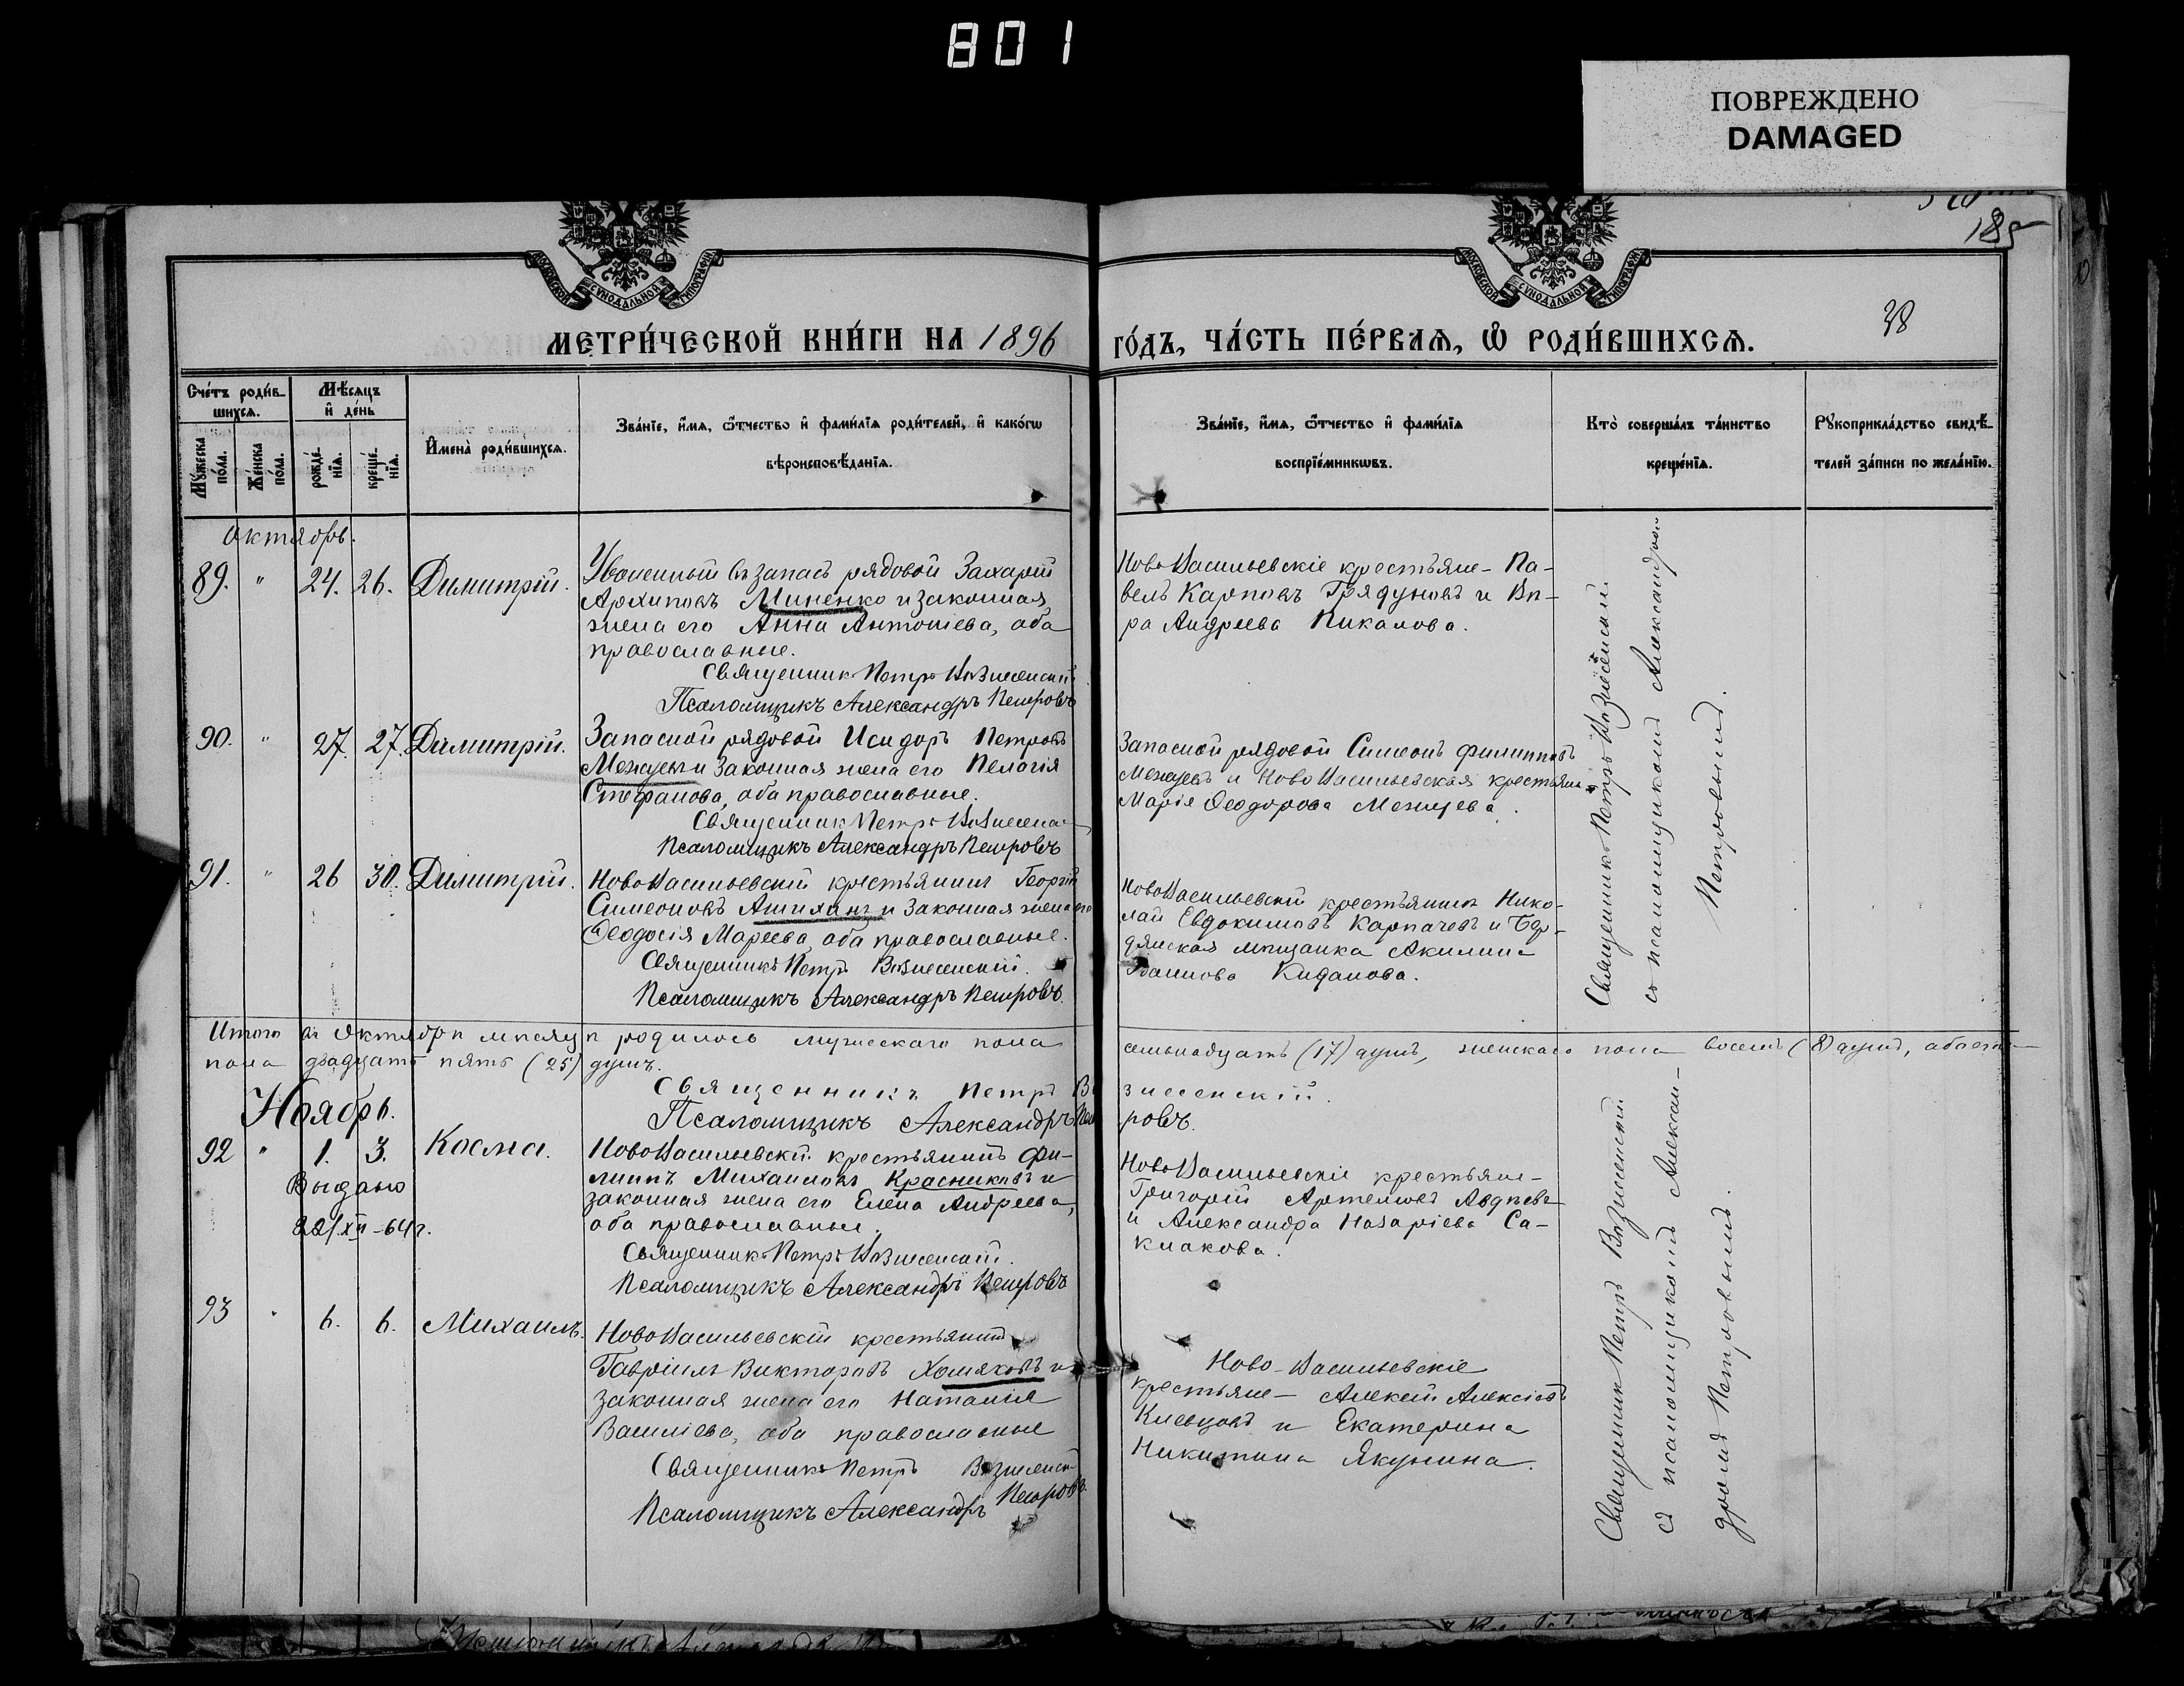 801
ПОВРЕЖДЕНО
DAMAGED
185
38
МОСКОВСКОЙ СУНОДАЛЬНОЙ ТИПОГРАФІИ
МОСКОВСКОЙ СУНОДАЛЬНОЙ ТИПОГРАФІИ
МЕТРИ́ЧЕСКОЙ КНИ́ГИ НА 1896
ГО́ДЪ, ЧА́СТЬ ПЕ́РВАѦ, Ѡ҆ РОДИ́ВШИХСѦ.
Сче́тъ роди́в-
шихсѧ.
Мѣ́сѧцъ
и҆ де́нь
Мꙋ́жеска
по́ла.
Же́нска
по́ла.
рожде́-
нїѧ.
креще́-
нїѧ.
И҆мена̀ роди́вшихсѧ.
Зва́нїе, и҆́мѧ, ѻ҆́тчество и҆ фами́лїѧ роди́телей, и҆ како́гѡ
вѣроисповѣ́данїѧ.
Зва́нїе, и҆́мѧ, ѻ҆́тчество и҆ фами́лїѧ
воспрїе́мникѡвъ.
Кто̀ соверша́лъ та́инство
креще́нїѧ.
Рꙋкоприкла́дство свидѣ́-
телей за́писи по жела́нїю.
Октябрь.
89. " 24. 26. Димитрій.
Уволенный въ запасъ рядовой Захарій
Архиповъ Миненко и законная
жена его Анна Антоніева, оба
православные.
Священникъ Петръ Вознесенскій
Псаломщикъ Александръ Петровъ
НовоВасильевскіе крестьяне - Па-
велъ Карповъ Грядуновъ и Вѣ-
ра Андреева Пикалова.
90. " 27. 27. Димитрій.
Запасной рядовой Исидоръ Петровъ
Межуевъ и законная жена его Пелагія
Стефанова, оба православные.
Священникъ Петръ Вознесен
Псаломщикъ Александръ Петровъ
Запасной рядовой Симеонъ Филипповъ
Межуевъ и НовоВасильевская крестьян
Марія Ѳеодорова Межуева.
91. " 26 30. Димитрій.
НовоВасильевскій крестьянинъ Георгій
Симеоновъ Ашихинъ и законная жена его
Ѳеодосія Мареева, оба православные.
Священникъ Петръ Вознесенскій.
Псаломщикъ Александръ Петровъ.
НовоВасильевскій крестьянинъ Нико-
лай Евдокимовъ Карпачевъ и Бер-
дянская мѣщанка Акилина
Иванова Киданова.
Священникъ Петръ Вознесенскій
съ псаломщикомъ Александромъ
Петровымъ.
Итого въ Октябрѣ мѣсяцѣ родилось мужескаго пола семьнадцать (17) душъ, женскаго пола восемь (8) душъ, обоего
пола двадцать пять (25) душъ.
Священникъ Петръ Вознесенскій.
Псаломщикъ Александръ Петровъ.
Ноябрь.
92 " 1. 3. Косма.
Выдано
22/XII-64 г.
НовоВасильевскій крестьянинъ Фи-
липпъ Михаиловъ Красниковъ и
законная жена его Елена Андреева,
оба православные.
Священникъ Петръ Вознесенскій.
Псаломщикъ Александръ Петровъ
НовоВасильевскіе крестьяне -
Григорій Артемовъ Авдѣевъ
и Александра Назаріева Са-
кмакова.
93 " 6. 6. Михаилъ.
НовоВасильевскій крестьянинъ
Гавріилъ Викторовъ Хомяковъ и
законная жена его Наталія
Василіева, оба православные
Священникъ Петръ Вознесенск
Псаломщикъ Александръ Петровъ.
Ново-Васильевскіе
крестьяне - Алексій Алексіевъ
Киевцовъ и Екатерина
Никитина Якунина.
Священникъ Петръ Вознесенскій
съ псаломщикомъ Алексан-
дромъ Петровымъ.